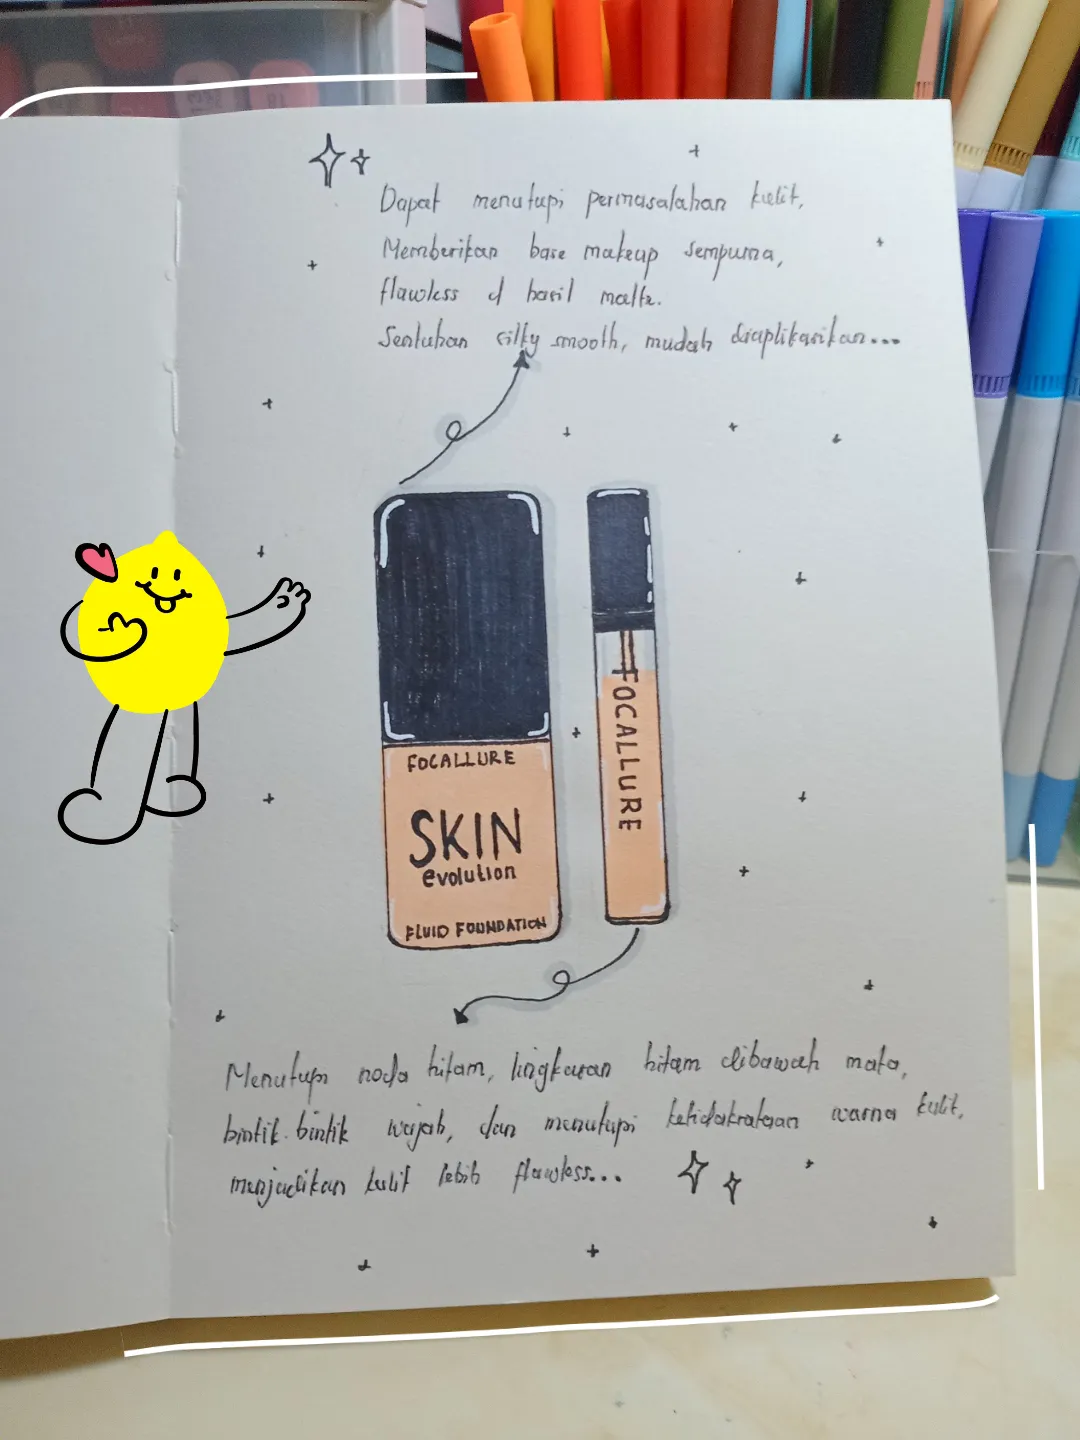 Dapat menutupi permasalahan kulit,
Memberikan base makeup sempurna,
flawless d hasil matte.
Sentuhan silky smooth, mudah diaplikasikan...
FOCALLURE
SKIN
evolution
FLUID FOUNDATION
FOCALLURE
Menutupi noda hitam, lingkaran hitam dibawah mata,
bintik-bintik wajah, dan menutupi ketidakrataan warna kulit,
menjadikan kulit lebih flawless...